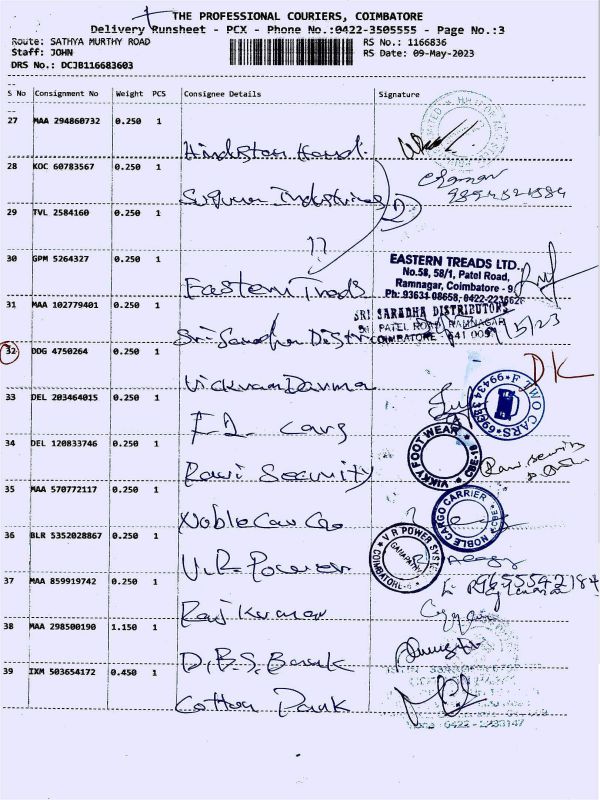 THE PROFESSIONAL COURIERS, COIMBATORE
Delivery Runsheet - PCX - Phone No.:0422-3505555 - Page No.:3
Route: SATHYA MURTHY ROAD
RS No.: 1166836
Staff: JOHN
RS Date: 09-May-2023
DRS No.: DCJB116683603
S No Consignment No Weight PCS Consignee Details Signature
27 MAA 294860732 0.250 1
Hindustan
28 KOC 60783567 0.250 1
9894521584
Suguna Industries
29 TVL 2584160 0.250 1
30 GPM 5264327 0.250 1
EASTERN TREADS LTD.
No.58, 58/1, Patel Road,
Ramnagar, Coimbatore - 9
Ph: 93631 08658, 0422-2236626
Eastern Treads
31 MAA 102779401 0.250 1
SRI SARADHA DISTRIBUTORS
PATEL ROAD, RAMNAGAR
COIMBATORE - 641 009
Sri Saradha Distri
32 DDG 4750264 0.250 1
DK
33 DEL 203464015 0.250 1
F TWO CARS
Cars
34 DEL 120833746 0.250 1
VIKKY FOOT WEAR CBE-18
Ravi Security
35 MAA 570772117 0.250 1
NOBLE CARGO CARRIER CBE
Noble Car Co
36 BLR 5352028867 0.250 1
V R POWER SYSTEM
GANAPATHY
COIMBATORE-6
V.R. Power
37 MAA 859919742 0.250 1
9655542184
Raj Kumar
38 MAA 298500190 1.150 1
D.B.S. Bank
39 IXM 503654172 0.450 1
Cotton Park